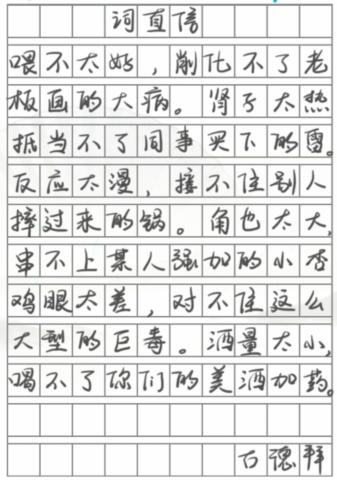 词直信
喂不太好，削化不了老
板画的大病。肾子太热
抵当不了同事买下的雷。
反应太漫，接不住别人
摔过来的锅。角也太大，
串不上某人强加的小杏
鸡眼太差，对不住这么
大型的巨毒。酒量太小，
喝不了你们的美酒加药。
古德拜